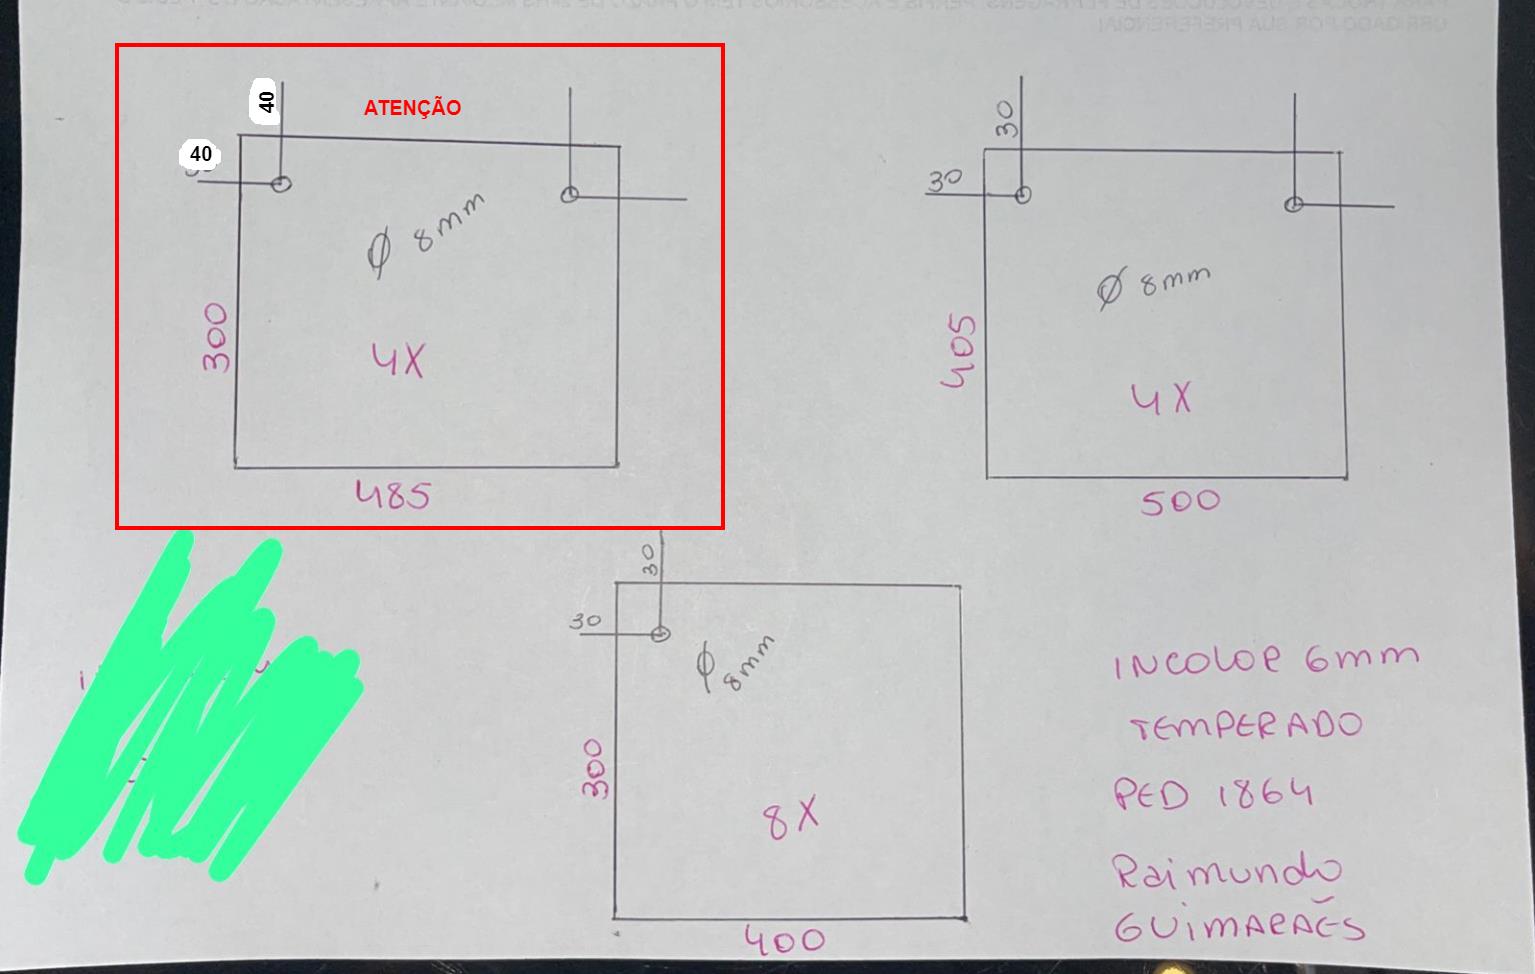 40
ATENÇÃO
40
Ø 8mm
300
4X
485
30
30
Ø 8mm
405
4X
500
30
30
Ø 8mm
300
8X
400
INCOLOR 6mm
TEMPERADO
PED 1864
Raimundo
GUIMARÃES